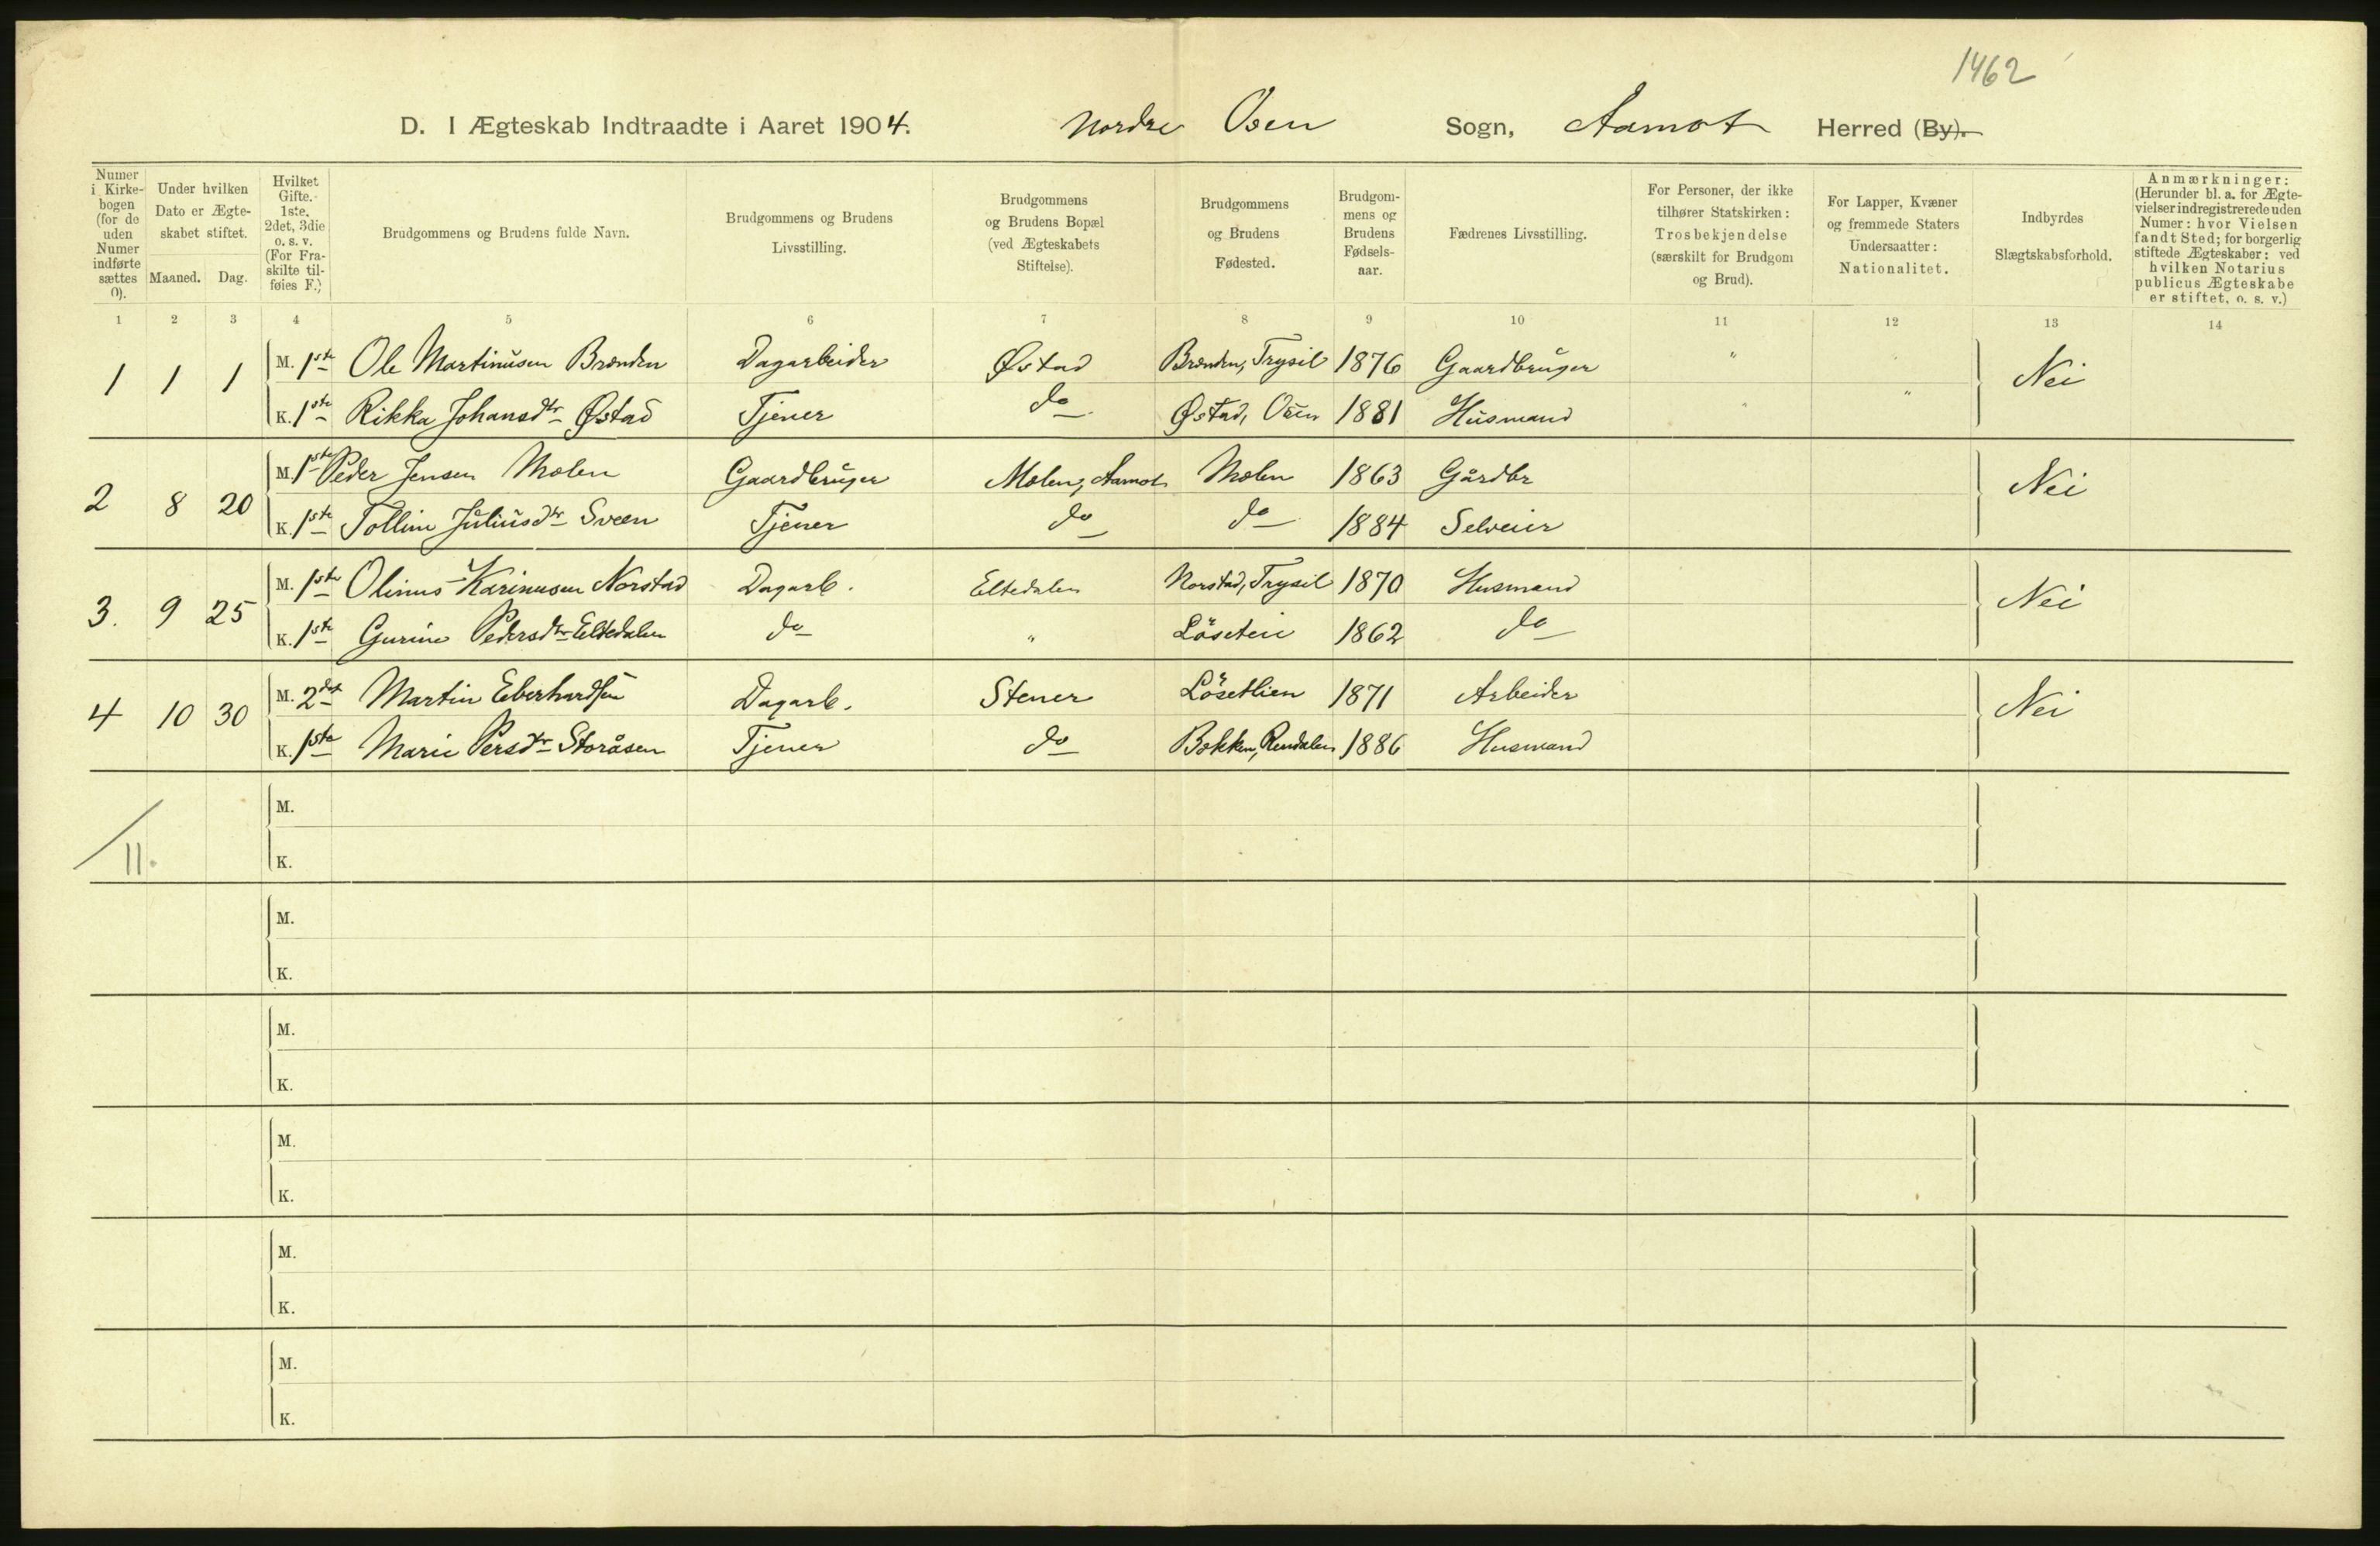 1462
D. I Ægteskab Indtraadte i Aaret 1904. Nordre Osen Sogn, Aamot Herred (By).
Numer i Kirke-bogen (for de uden Numer indførte sættes 0). Under hvilken Dato er Ægte-skabet stiftet. Maaned. Dag. Hvilket Gifte. 1ste, 2det, 3die o. s. v. (For Fra-skilte til-føies F.) Brudgommens og Brudens fulde Navn. Brudgommens og Brudens Livsstilling. Brudgommens og Brudens Bopæl (ved Ægteskabets Stiftelse). Brudgommens og Brudens Fødested. Brudgom-mens og Brudens Fødsels-aar. Fædrenes Livsstilling. For Personer, der ikke tilhører Statskirken: Trosbekjendelse (særskilt for Brudgom og Brud). For Lapper, Kvæner og fremmede Staters Undersaatter: Nationalitet. Indbyrdes Slægtskabsforhold. Anmærkninger: (Herunder bl. a. for Ægte-vielser indregistrerede uden Numer: hvor Vielsen fandt Sted; for borgerlig stiftede Ægteskaber: ved hvilken Notarius publicus Ægteskabe er stiftet, o. s. v.)
1 2 3 4 5 6 7 8 9 10 11 12 13 14
1 1 1 M. 1ste Ole Martinusen Brænden Dagarbeider Østad Brænden, Trysil 1876 Gaardbruger " " Nei
K. 1ste Rikka Johansdtr Østad Tjener do Østad, Osen 1881 Husmand " "
2 8 20 M. 1ste Peder Jensen Molen Gaardbruger Molen, Aamot Molen 1863 Gårdbr Nei
K. 1ste Tolline Juliusdtr Sveen Tjener do do 1884 Selveier
3. 9 25 M. 1ste Olinus Karinusen Norstad Dagarb. Eltedalen Norstad, Trysil 1870 Husmand Nei
K. 1ste Gurine Pedersdtr Eltedalen do " Löseteie 1862 do
4 10 30 M. 2det Martin Eberhardsen Dagarb. Stener Lösetlien 1871 Arbeider Nei
K. 1ste Marie Persdtr Storåsen Tjener do Bekken, Rendalen 1886 Husmand
M.
11. K.
M.
K.
M.
K.
M.
K.
M.
K.
M.
K.